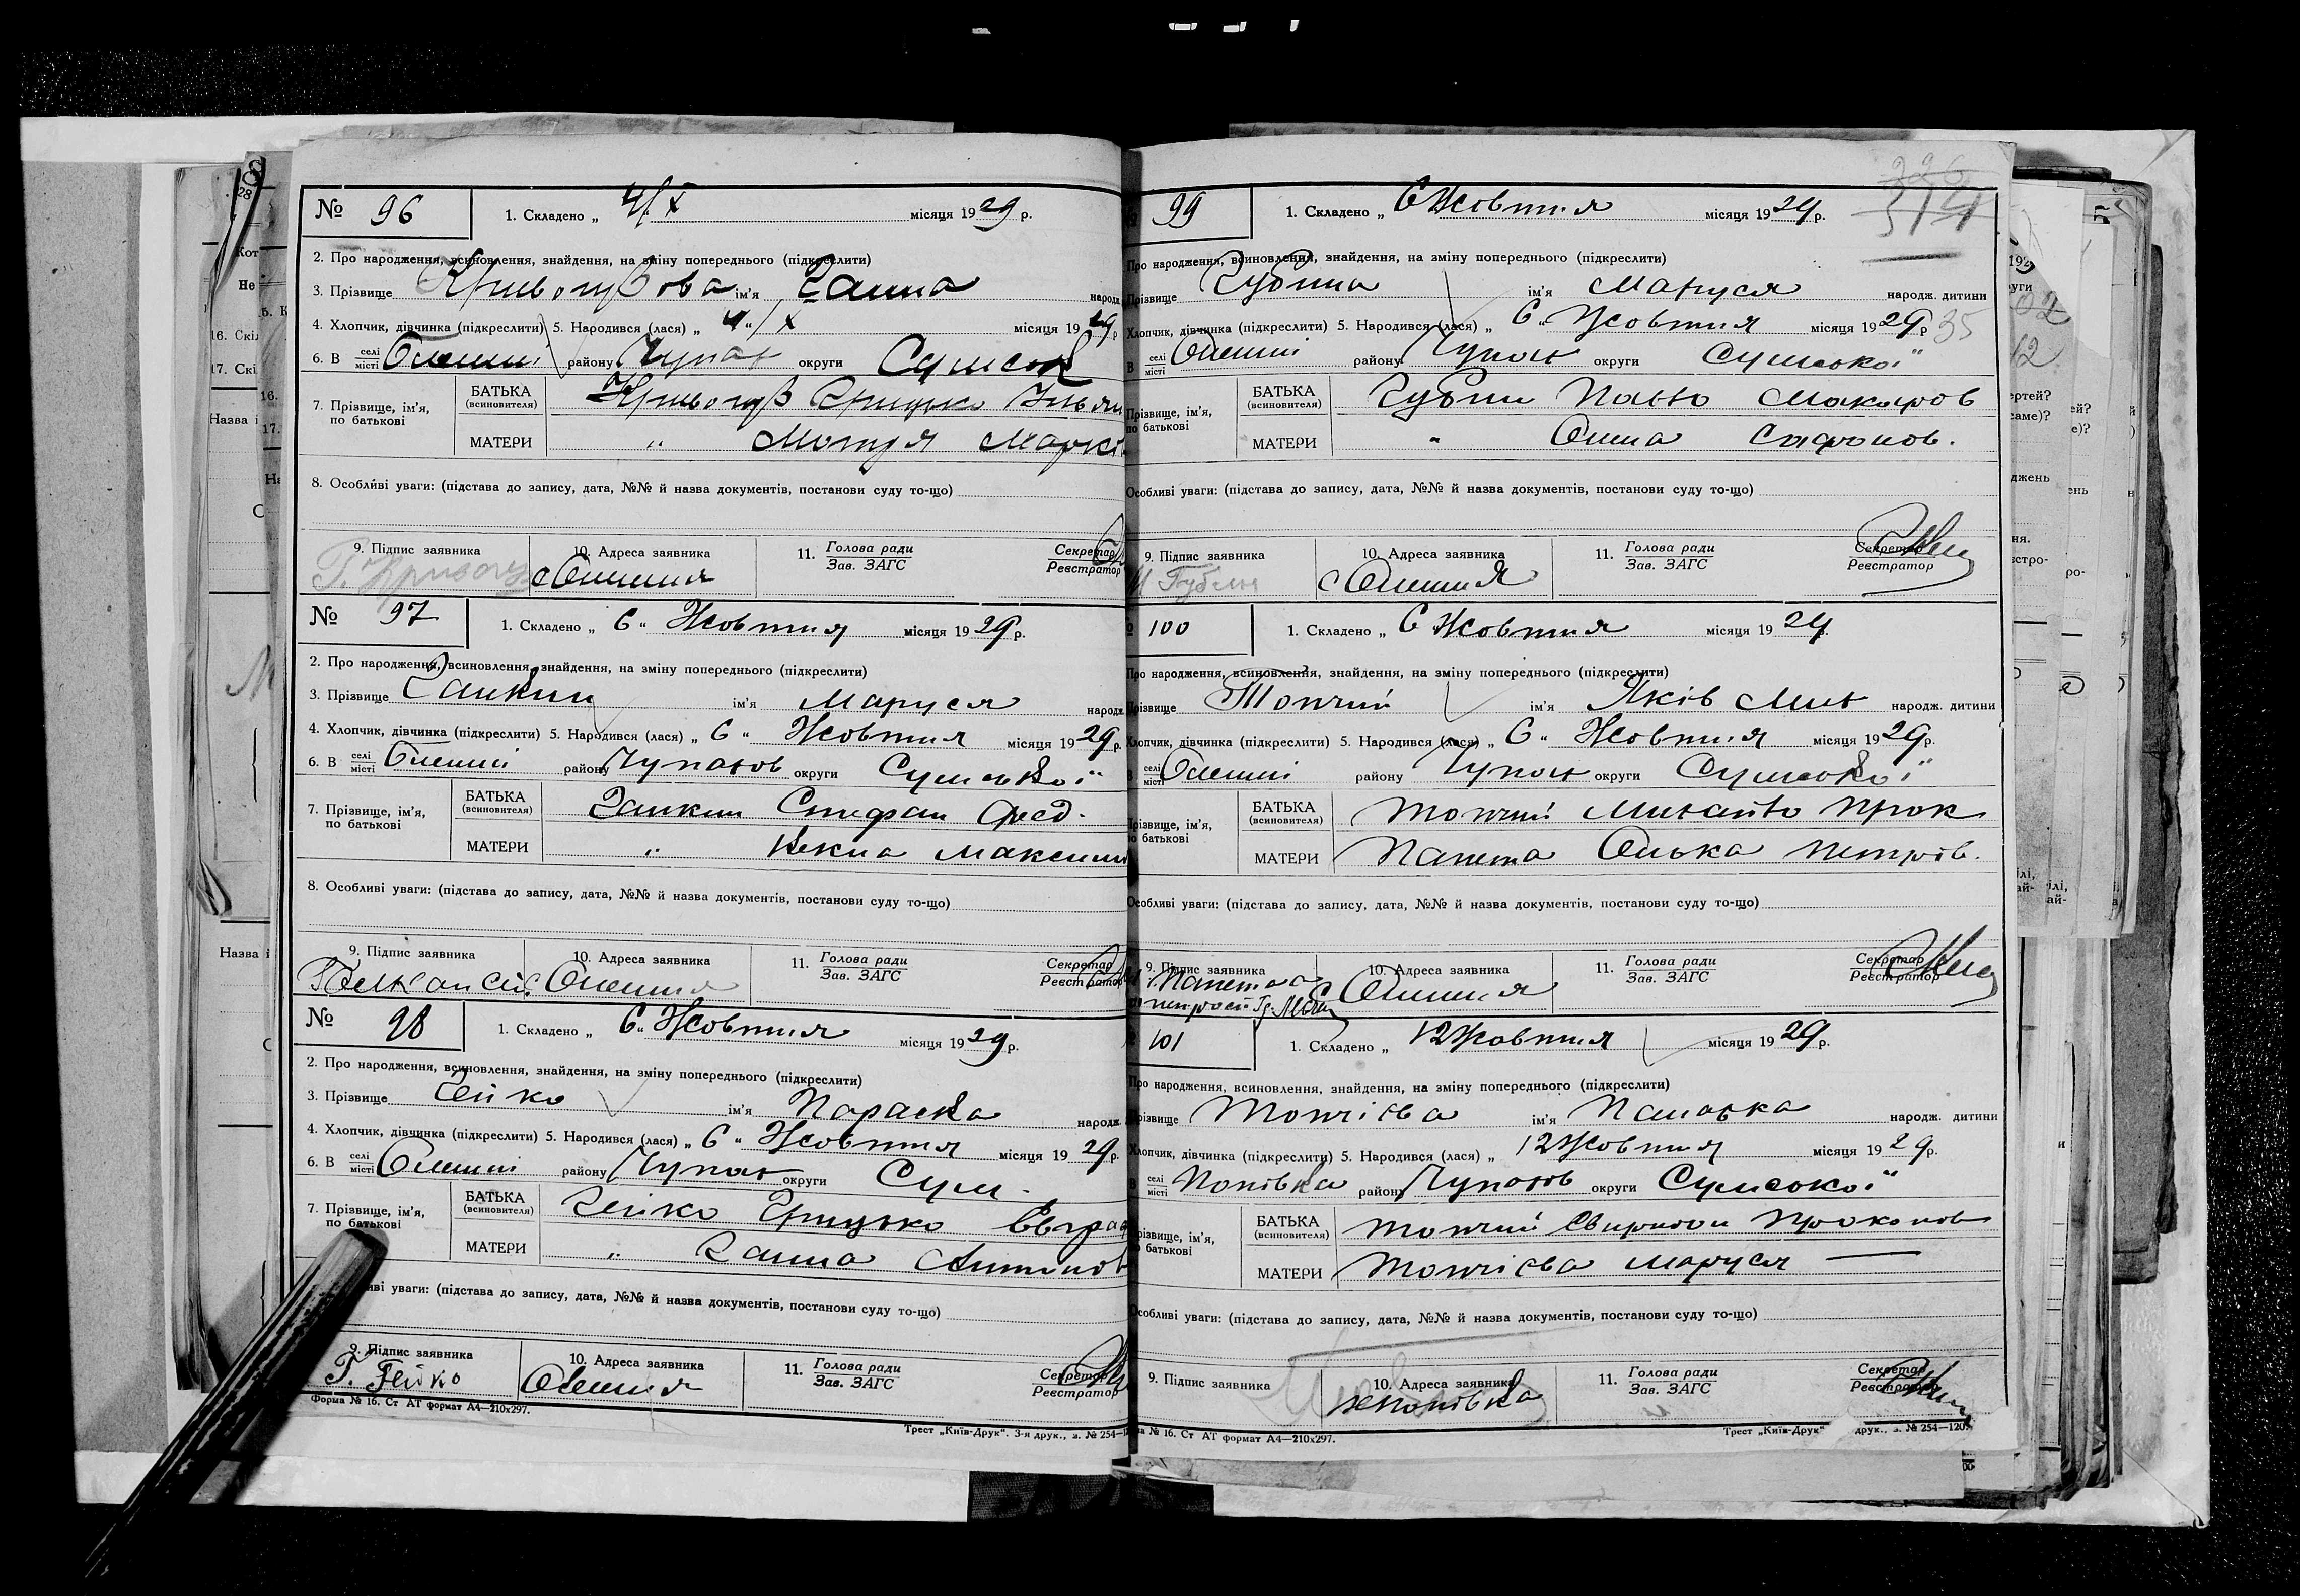 № 96 1. Складено „ 4/X місяця 1929 р.
2. Про народження, всиновлення, знайдення, на зміну попереднього (підкреслити)
3. Прізвище ім'я Ганна народж.
4. Хлопчик, дівчинка (підкреслити) 5. Народився (лася) „ 4 " X місяця 1929 р
6. В селі місті Олешні району Чупах округи Сумськ
7. Прізвище, ім'я, по батькові БАТЬКА (всиновителя) Грицько
МАТЕРИ " Мотря Марків
8. Особливі уваги: (підстава до запису, дата, №№ й назва документів, постанови суду то-що)
9. Підпис заявника 10. Адреса заявника 11. Голова ради Зав. ЗАГС Секретар Реєстратор
с Олешня
№ 97 1. Складено „ 6 " Жовтня місяця 1929 р.
2. Про народження, всиновлення, знайдення, на зміну попереднього (підкреслити)
3. Прізвище ім'я Маруся народж.
4. Хлопчик, дівчинка (підкреслити) 5. Народився (лася) „ 6 " Жовтня місяця 1929 р.
6. В селі місті Олешні району Чупахов округи Сумської
7. Прізвище, ім'я, по батькові БАТЬКА (всиновителя) Стефан Фед.
МАТЕРИ " Максим
8. Особливі уваги: (підстава до запису, дата, №№ й назва документів, постанови суду то-що)
9. Підпис заявника 10. Адреса заявника 11. Голова ради Зав. ЗАГС Секретар Реєстратор
Олешня
№ 98 1. Складено „ 6 " Жовтня місяця 1929 р.
2. Про народження, всиновлення, знайдення, на зміну попереднього (підкреслити)
3. Прізвище Гейко ім'я Параска народж.
4. Хлопчик, дівчинка (підкреслити) 5. Народився (лася) „ 6 " Жовтня місяця 1929 р.
6. В селі місті Олешні району Чупах округи Сум.
7. Прізвище, ім'я, по батькові БАТЬКА (всиновителя) Гейко Грицько Евграф
МАТЕРИ " Ганна Антонов
уваги: (підстава до запису, дата, №№ й назва документів, постанови суду то-що)
9. Підпис заявника 10. Адреса заявника 11. Голова ради Зав. ЗАГС Секретар Реєстратор
Г. Гейко Олешня
Форма № 16. Ст АТ формат А4—210х297.
Трест „Київ-Друк". 3-я друк., з. № 254—
99 1. Складено „ 6 Жовтня місяця 1929 р.
Про народження, всиновлення, знайдення, на зміну попереднього (підкреслити)
Прізвище Губина ім'я Маруся народж. дитини
Хлопчик, дівчинка (підкреслити) 5. Народився (лася) „ 6 " Жовтня місяця 1929 р 35
В селі місті Олешні району Чупах округи Сумської
Прізвище, ім'я, по батькові БАТЬКА (всиновителя) Губин Павло Макаров
МАТЕРИ " Олена Сафронов.
Особливі уваги: (підстава до запису, дата, №№ й назва документів, постанови суду то-що)
9. Підпис заявника 10. Адреса заявника 11. Голова ради Зав. ЗАГС Секретар Реєстратор
Губин с Олешня
100 1. Складено „ 6 Жовтня місяця 1929.
Про народження, всиновлення, знайдення, на зміну попереднього (підкреслити)
Прізвище Топчий ім'я Яків Мих народж. дитини
Хлопчик, дівчинка (підкреслити) 5. Народився (лася) „ 6 " Жовтня місяця 1929 р.
В селі місті Олешні району Чупах округи Сумської
Прізвище, ім'я, по батькові БАТЬКА (всиновителя) Топчий Михайло Прок
МАТЕРИ Папета Олька Петров.
Особливі уваги: (підстава до запису, дата, №№ й назва документів, постанови суду то-що)
9. Підпис заявника 10. Адреса заявника 11. Голова ради Зав. ЗАГС Секретар Реєстратор
Папета Олешня
101 1. Складено „ 12 Жовтня місяця 1929 р.
Про народження, всиновлення, знайдення, на зміну попереднього (підкреслити)
Прізвище Топчієва ім'я Палажка народж. дитини
Хлопчик, дівчинка (підкреслити) 5. Народився (лася) „ 12 Жовтня місяця 1929 р.
В селі місті Попівка району Чупахов округи Сумської
Прізвище, ім'я, по батькові БАТЬКА (всиновителя) Топчий Свиридон Прокопов
МАТЕРИ Топчієва Маруся —
Особливі уваги: (підстава до запису, дата, №№ й назва документів, постанови суду то-що)
9. Підпис заявника 10. Адреса заявника 11. Голова ради Зав. ЗАГС Секретар Реєстратор
х Попівка
№ 16. Ст АТ формат А4—210х297.
Трест „Київ-Друк" друк., з. № 254—120.